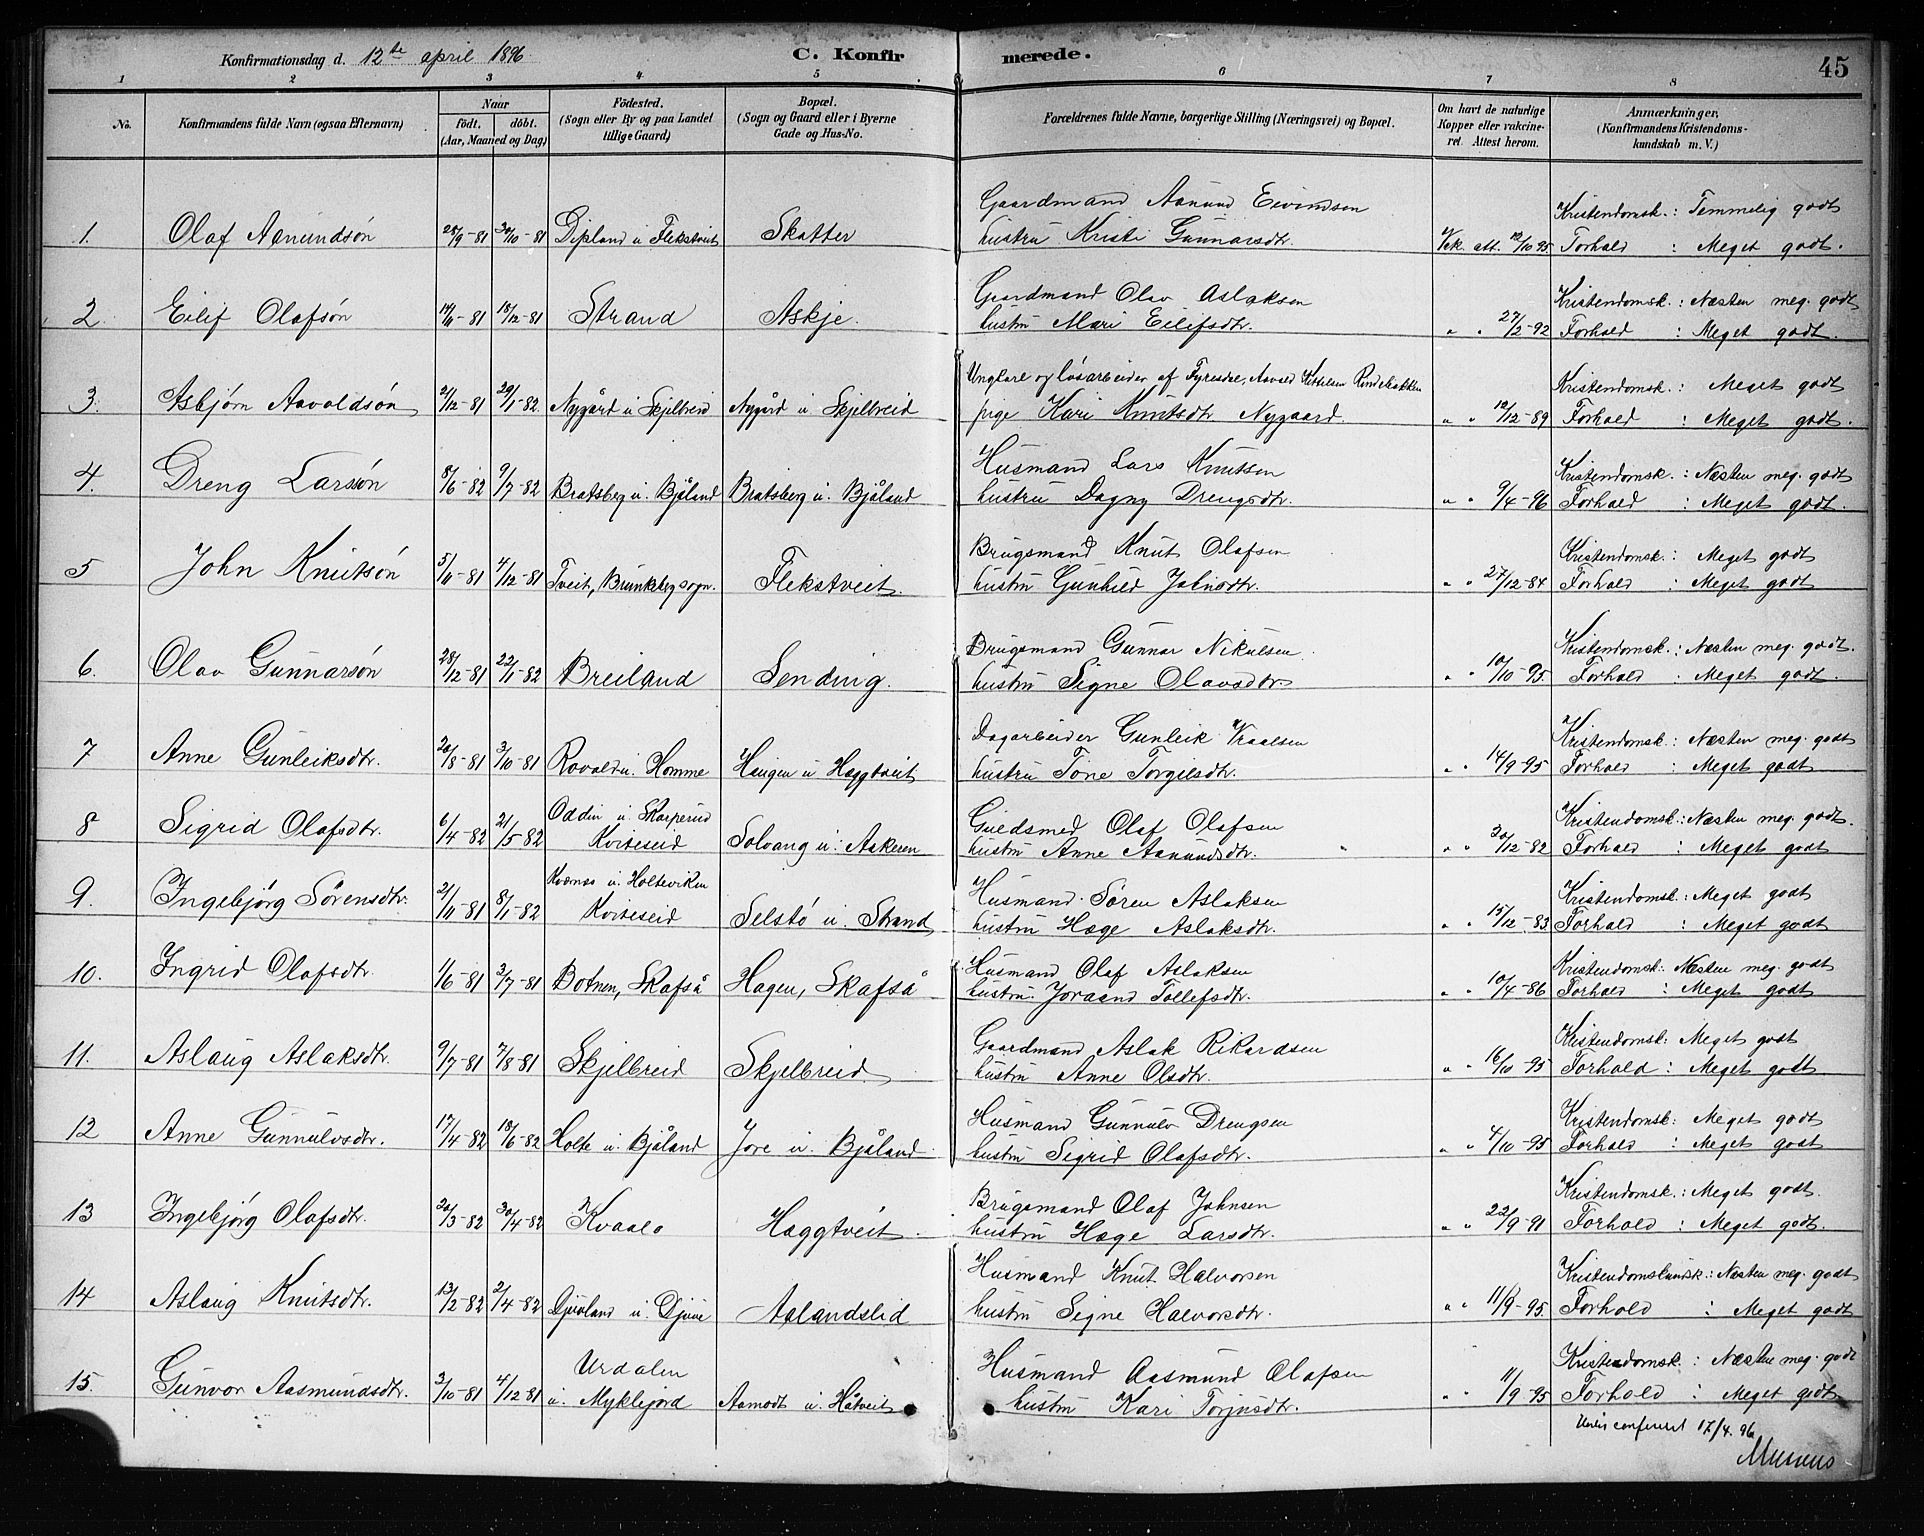 Konfirmationsdag d. 12te april 1896.
C. Konfirmerede.
45
1 2 3 4 5 6 7 8
No.
Konfirmandens fulde Navn (ogsaa Efternavn)
Naar
födt. döbt.
(Aar, Maaned og Dag)
Födested.
(Sogn eller By og paa Landet
tillige Gaard)
Bopæl.
(Sogn og Gaard eller i Byerne
Gade og Hus-No.
Forældrenes fulde Navne, borgerlige Stilling (Næringsvei) og Bopæl.
Om havt de naturlige
Kopper eller vakcine-
ret. Attest herom.
Anmærkninger,
(Konfirmandens Kristendoms-
kundskab m. V.)
Gaardmand Aanund Eivindsen Kristendomsk.: Temmelig godt
1. Olaf Aanundsön 28/9-81 30/10-81 Dipland u Flekstveit Skatter hustru Kristi Gunnarsdtr. Vek. att. 12/10 95 Forhold : Meget godt.
Gaardmand Olav Aslaksen Kristendomsk.: Næsten meg. godt
2 Eilif Olafsön 14/11-81 18/12-81 Strand Askje. hustru Mari Eilifsdtr. " " 27/2-92 Forhold : Meget godt.
Ungkare og lösarbeider af Fyresdal, Aavald Kittilsen Kristendomsk.: Meget godt
3. Asbjörn Aavoldsön 2/12-81 29/1-82 Nygård u Skjelbreid Nygård u Skjelbreid pige Kari Knutsdtr. Nygaard. " " 12/12-89 Forhold : Meget godt.
Husmand Lars Knutsen Kristendomsk.: Næsten meg. godt
4. Dreng Larssön 8/6-82 9/7-82 Bratsberg u. Bjåland Bratsberg u. Bjåland hustru Dagny Drengsdtr. " " 9/4-96 Forhold : Meget godt.
Brugsmand Knut Olafsen Kristendomsk.: Meget godt
5 John Knutsön 5/11-81 4/12-81 Tveit, Brunkeberg sogn. Flekstveit. hustru Gunhild Johnsdtr. " " 27/12-84 Forhold : Meget godt
Brugsmand Gunnar Nikulsen Kristendomsk.: Næsten meg. godt.
6. Olav Gunnarsön 28/12-81 22/1-82 Breiland Sending. hustru Signe Olavsdtr. " " 10/10-95. Forhold : Meget godt.
Dagarbeider Gunleik Vraalsen Kristendomsk.: Næsten meg. godt
7 Anne Gunleiksdtr. 20/8-81 3/10-81 Rovald u. Homme Haugen u Haggtveit hustru Tone Torgilsdtr. " " 14/9-95 Forhold : Meget godt
Oddin u. Skarperud Guldsmed Olaf Olafsen Kristendomsk.: Næsten meg. godt.
8 Sigrid Olafsdtr. 6/4-82 21/5-82 Kviteseid Solvang u. Aakeren hustru Anne Aanundsdtr. " " 30/12-82 Forhold : Meget godt
Kvernes u. Holteviken Husmand Sören Aslaksen Kristendomsk.: Meget godt
9. Ingebjörg Sörensdtr. 2/11-81 8/1-82 Kviteseid Selstö u. Strand hustru Hæge Aslaksdtr. " " 15/12-83 Forhold : Meget godt
Husmand Olaf Aslaksen Kristendomsk.: Næsten meg. godt
10. Ingrid Olafsdtr. 1/6-81 3/7-81 Botnen, Skafså Hagen, Skafså hustru Joraand Tollefsdtr. " " 10/4-86 Forhold : Meget godt
Gaardmand Aslak Rikardsen Kristendomsk: Meget godt
11. Aslaug Aslaksdtr. 9/7-81 7/8-81 Skjelbreid Skjelbreid. hustru Anne Olsdtr. " " 16/10-95 Forhold : Meget godt.
Husmand Gunnulv Drengsen Kristendomsk: Meget godt
12 Anne Gunnulvsdtr. 17/4-82 18/6-82 Holte u. Bjåland Jore u. Bjåland hustru Sigrid Olafsdtr. " " 4/10-95 Forhold : Meget godt
Brugsmand Olaf Johnsen Kristendomsk.: Meget godt.
13 Ingebjörg Olafsdtr. 20/3-82 30/4-82 Kvaale Haggtveit. hustru Hæge Larsdtr. " " 22/9-91 Forhold : Meget godt.
Husmand Knut Halvorsen Kristendomskundsk.: Næsten meg. godt
14 Aslaug Knutsdtr. 13/2-82 2/4-82 Djuvland u. Djuve Aalandslid hustru Signe Halvorsdtr. " " 11/9-95. Forhold : Meget godt
Urdalen Husmand Aasmund Olafsen Kristendomsk.: Næsten meg. godt
15. Gunvor Aasmundsdtr. 3/10-81 4/12-81 u. Myklejord Aamodt u. Håtveit hustru Kari Torjusdtr. " " 11/9-95 Forhold : Meget godt
confereret 17/4. 96